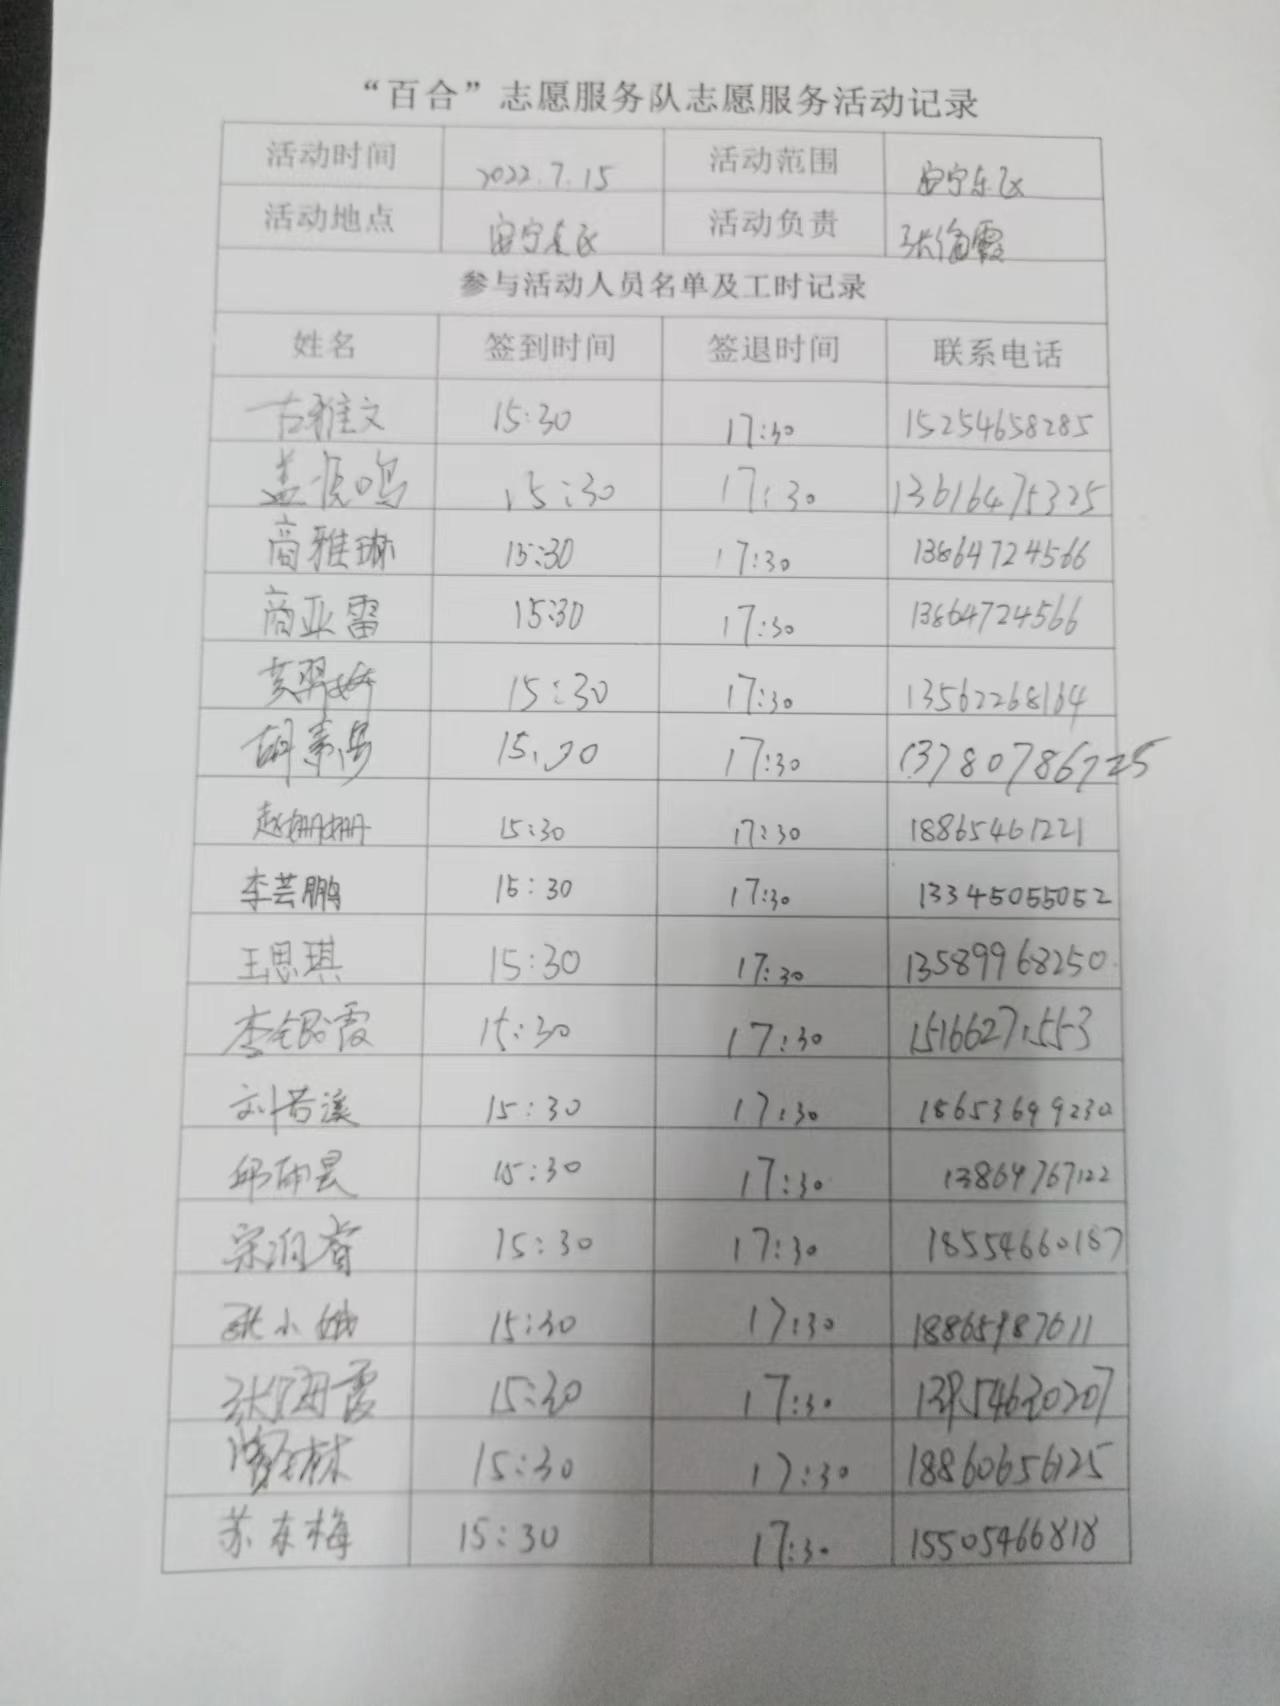 “百合”志愿服务队志愿服务活动记录
活动时间 2022.7.15 活动范围 安宁东区
活动地点 安宁东区 活动负责 张海霞
参与活动人员名单及工时记录
姓名 签到时间 签退时间 联系电话
古雅文 15:30 17:30 15254658285
15:30 17:30 13616475325
商雅琳 15:30 17:30 13864724566
商亚雷 15:30 17:30 13864724566
15:30 17:30 13562268164
15:30 17:30 13780786725
赵珊珊 15:30 17:30 18865461221
李芸鹏 15:30 17:30 13345055052
王思琪 15:30 17:30 13589968250
李银霞 15:30 17:30 15166271553
刘若溪 15:30 17:30 18653699230
15:30 17:30 13864767122
15:30 17:30 18554660187
15:30 17:30
张海霞 15:30 17:30
15:30 17:30 18860656125
苏东梅 15:30 17:30 15505466818